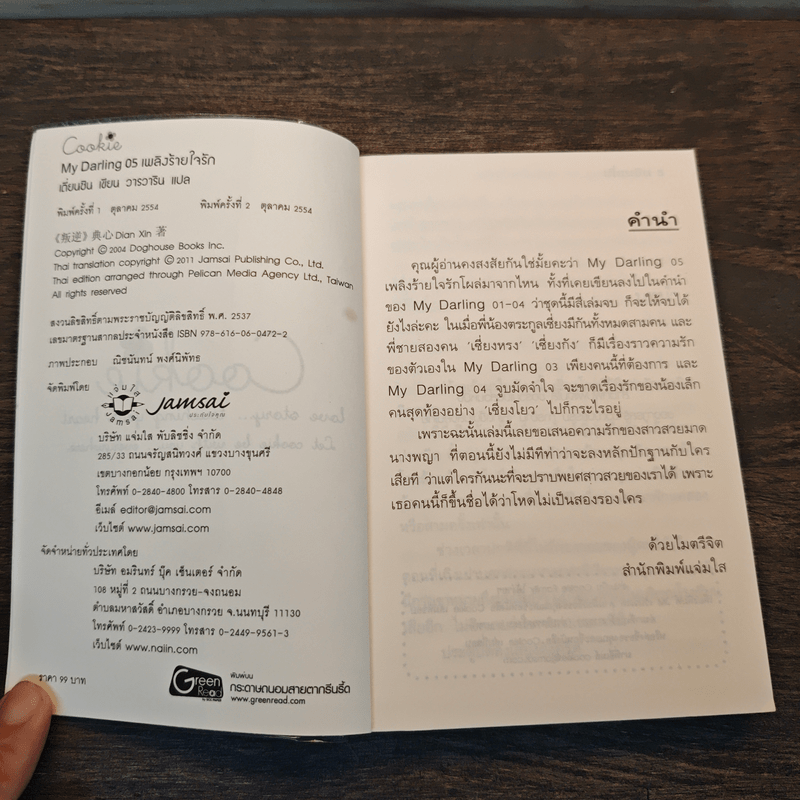 Cookie
My Darling 05 เพลิงร้ายใจรัก
เตี่ยนซิน เขียน วารวาริน แปล
พิมพ์ครั้งที่ 1 ตุลาคม 2554 พิมพ์ครั้งที่ 2 ตุลาคม 2554
《叛逆》典心 Dian Xin 著
Copyright © 2004 Doghouse Books Inc.
Thai translation copyright © 2011 Jamsai Publishing Co., Ltd.
Thai edition arranged through Pelican Media Agency Ltd., Taiwan
All rights reserved
สงวนลิขสิทธิ์ตามพระราชบัญญัติลิขสิทธิ์ พ.ศ. 2537
เลขมาตรฐานสากลประจำหนังสือ ISBN 978-616-06-0472-2
ภาพประกอบ ณิชนันทน์ พงศ์นิพัทธ
จัดพิมพ์โดย
แจ่มใส
jamsai
Jamsai
บริษัท แจ่มใส พับลิชชิ่ง จำกัด
285/33 ถนนจรัญสนิทวงศ์ แขวงบางขุนศรี
เขตบางกอกน้อย กรุงเทพฯ 10700
โทรศัพท์ 0-2840-4800 โทรสาร 0-2840-4848
อีเมล์ editor@jamsai.com
เว็บไซต์ www.jamsai.com
จัดจำหน่ายทั่วประเทศโดย
บริษัท อมรินทร์ บุ๊ค เซ็นเตอร์ จำกัด
108 หมู่ที่ 2 ถนนบางกรวย-จงถนอม
ตำบลมหาสวัสดิ์ อำเภอบางกรวย จ.นนทบุรี 11130
โทรศัพท์ 0-2423-9999 โทรสาร 0-2449-9561-3
เว็บไซต์ www.naiin.com
ราคา 99 บาท
Green Read
พิมพ์บน
กระดาษถนอมสายตากรีนรี้ด
www.greenread.com
คำนำ
คุณผู้อ่านคงสงสัยกันใช่มั้ยคะว่า My Darling 05
เพลิงร้ายใจรักโผล่มาจากไหน ทั้งที่เคยเขียนลงไปในคำนำ
ของ My Darling 01-04 ว่าชุดนี้มีสี่เล่มจบ ก็จะให้จบได้
ยังไงล่ะคะ ในเมื่อพี่น้องตระกูลเซี่ยงมีกันทั้งหมดสามคน และ
พี่ชายสองคน 'เซี่ยงหรง' 'เซี่ยงกัง' ก็มีเรื่องราวความรัก
ของตัวเองใน My Darling 03 เพียงคนนี้ที่ต้องการ และ
My Darling 04 จูบมัดจำใจ จะขาดเรื่องรักของน้องเล็ก
คนสุดท้องอย่าง 'เซี่ยงโยว' ไปก็กระไรอยู่
เพราะฉะนั้นเล่มนี้เลยขอเสนอความรักของสาวสวยมาด
นางพญา ที่ตอนนี้ยังไม่มีทีท่าว่าจะลงหลักปักฐานกับใคร
เสียที ว่าแต่ใครกันนะที่จะปราบพยศสาวสวยของเราได้ เพราะ
เธอคนนี้ก็ขึ้นชื่อได้ว่าโหดไม่เป็นสองรองใคร
ด้วยไมตรีจิต
สำนักพิมพ์แจ่มใส